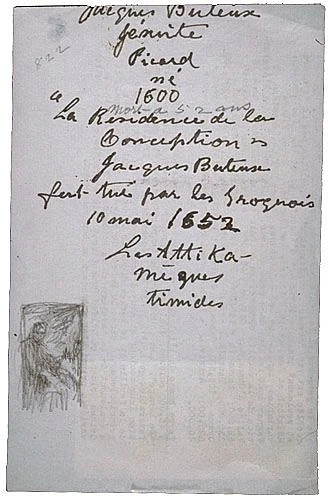 Jacques Buteux
Jesuite
Picard
né
1600
mort à 52 ans
"La Résidence de la
Conception"
Jacques Buteux
fut tué par les Iroquois
10 mai 1652
Les Attika-
mègues
timides
822